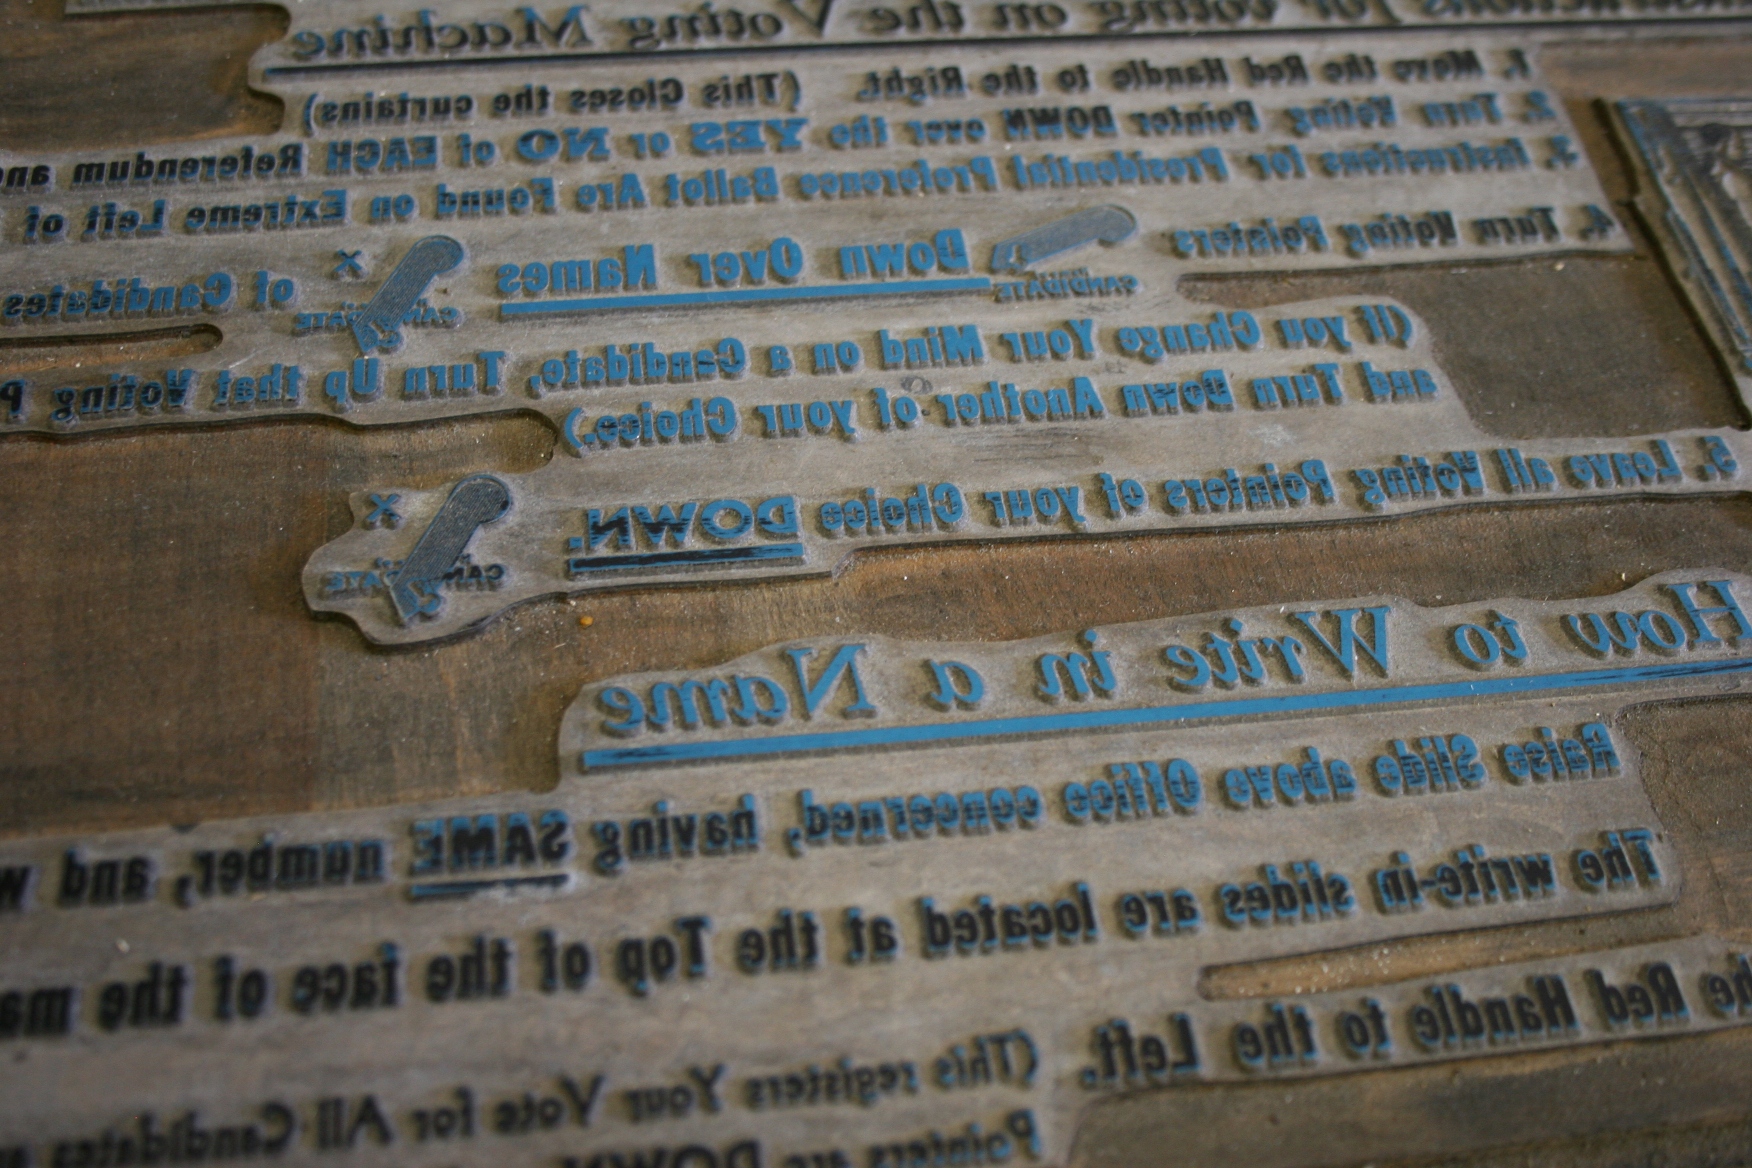 Instructions for Voting on the Voting Machine
1. Move the Red Handle to the Right. (This Closes the curtains)
2. Turn Voting Pointer DOWN over the YES or NO of EACH Referendum and
3. Instructions for Presidential Preference Ballot Are Found on Extreme Left of
4. Turn Voting Pointers CANDIDATE Down Over Names X CANDIDATE of Candidates
(If you Change Your Mind on a Candidate, Turn Up that Voting P
and Turn Down Another of your Choice.)
5. Leave all Voting Pointers of your Choice DOWN. X CANDIDATE
How to Write in a Name
Raise Slide above Office concerned, having SAME number, and w
The write-in slides are located at the Top of the face of the ma
the Red Handle to the Left. (This registers Your Vote for All Candidates
Pointers are DOWN